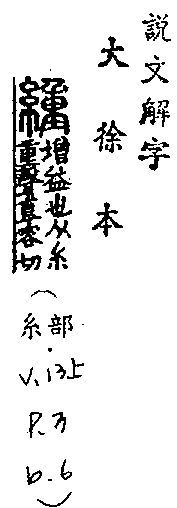 説文解字
大徐本
緟
增益也从糸
重聲直容切
(
糸部·
V. 13上
P. 3
b. 6
)